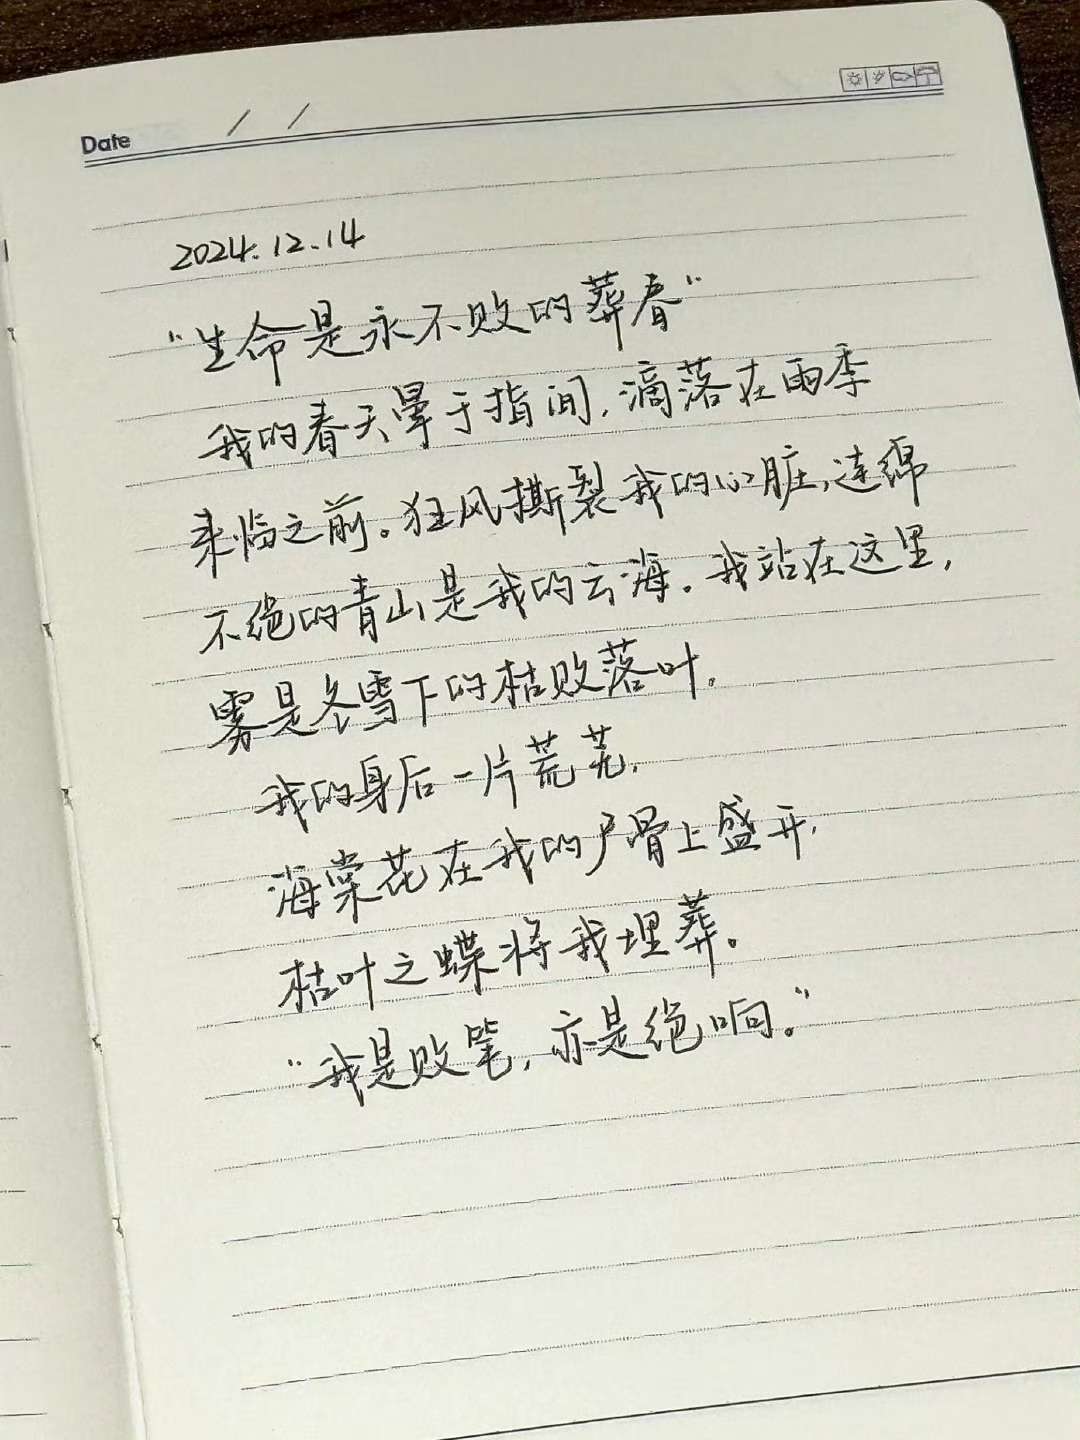 Date / /
2024.12.14
“生命是永不败的葬春”
我的春天晕于指间,滴落在雨季
来临之前。狂风撕裂我的心脏,连绵
不绝的青山是我的云海。我站在这里,
雾是冬雪下的枯败落叶。
我的身后一片荒芜,
海棠花在我的尸骨上盛开,
枯叶之蝶将我埋葬。
“我是败笔,亦是绝响。”